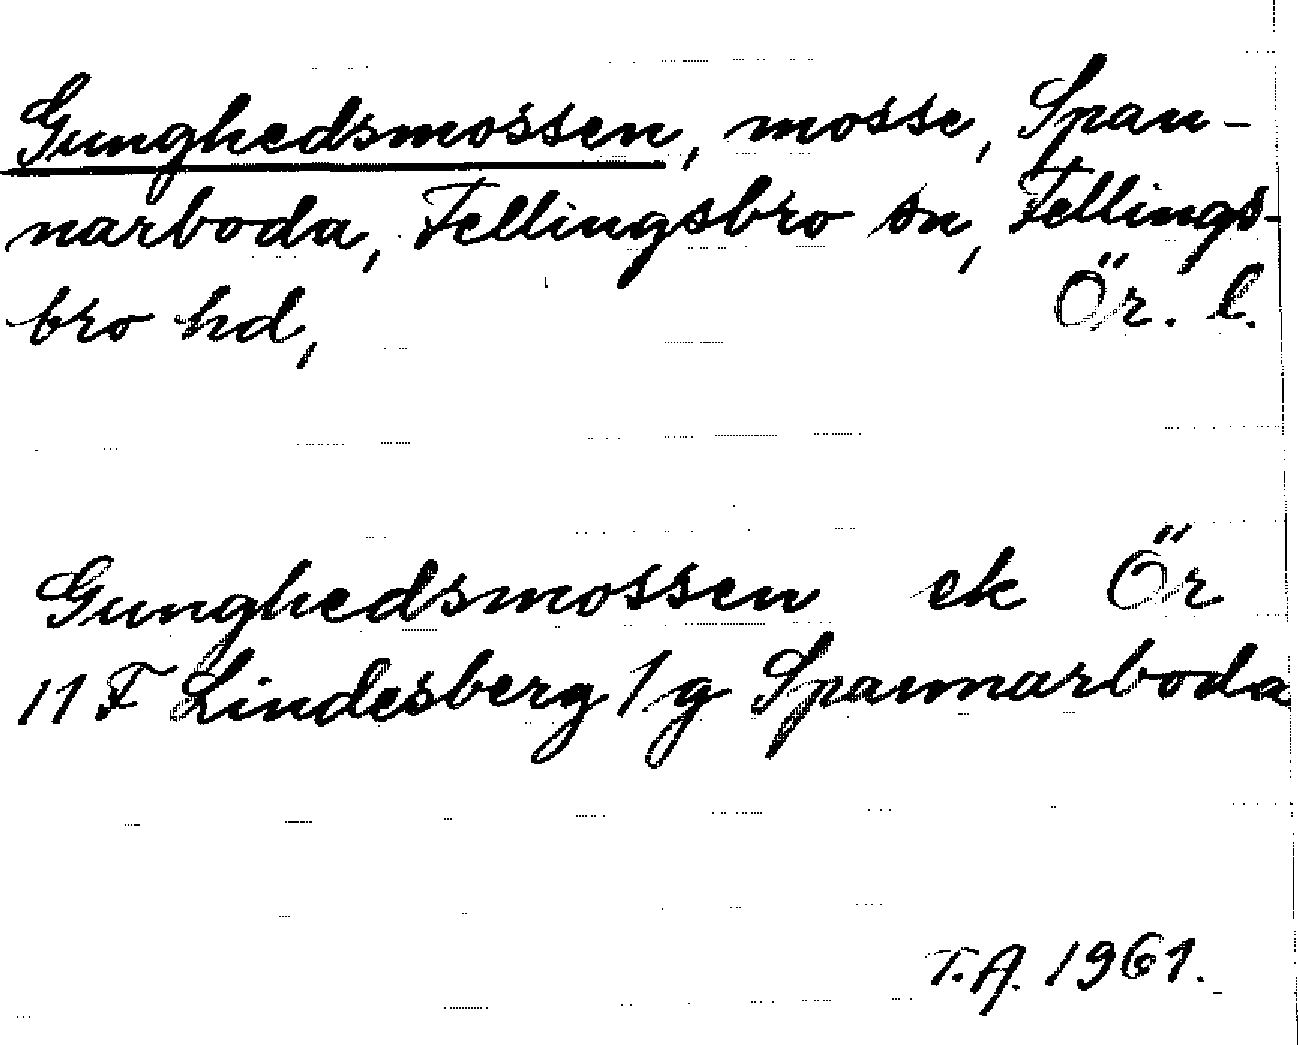 Gunghedsmossen, mosse, Span-
narboda, Fellingsbro sn, Fellings-
bro hd, Ör. l.
Gunghedsmossen ek Ör
11 F Lindesberg 1 g Spannarboda
T.A. 1961.